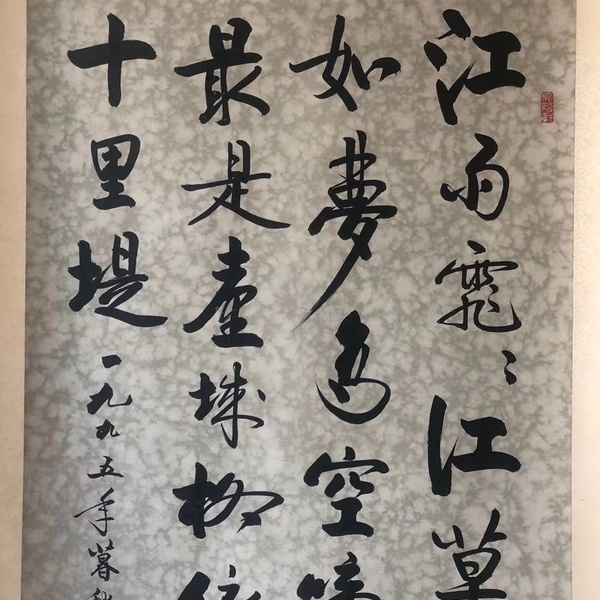 江雨霏〻江草
如夢鳥空啼
最是臺城柳依
十里堤
一九九五年暮秋